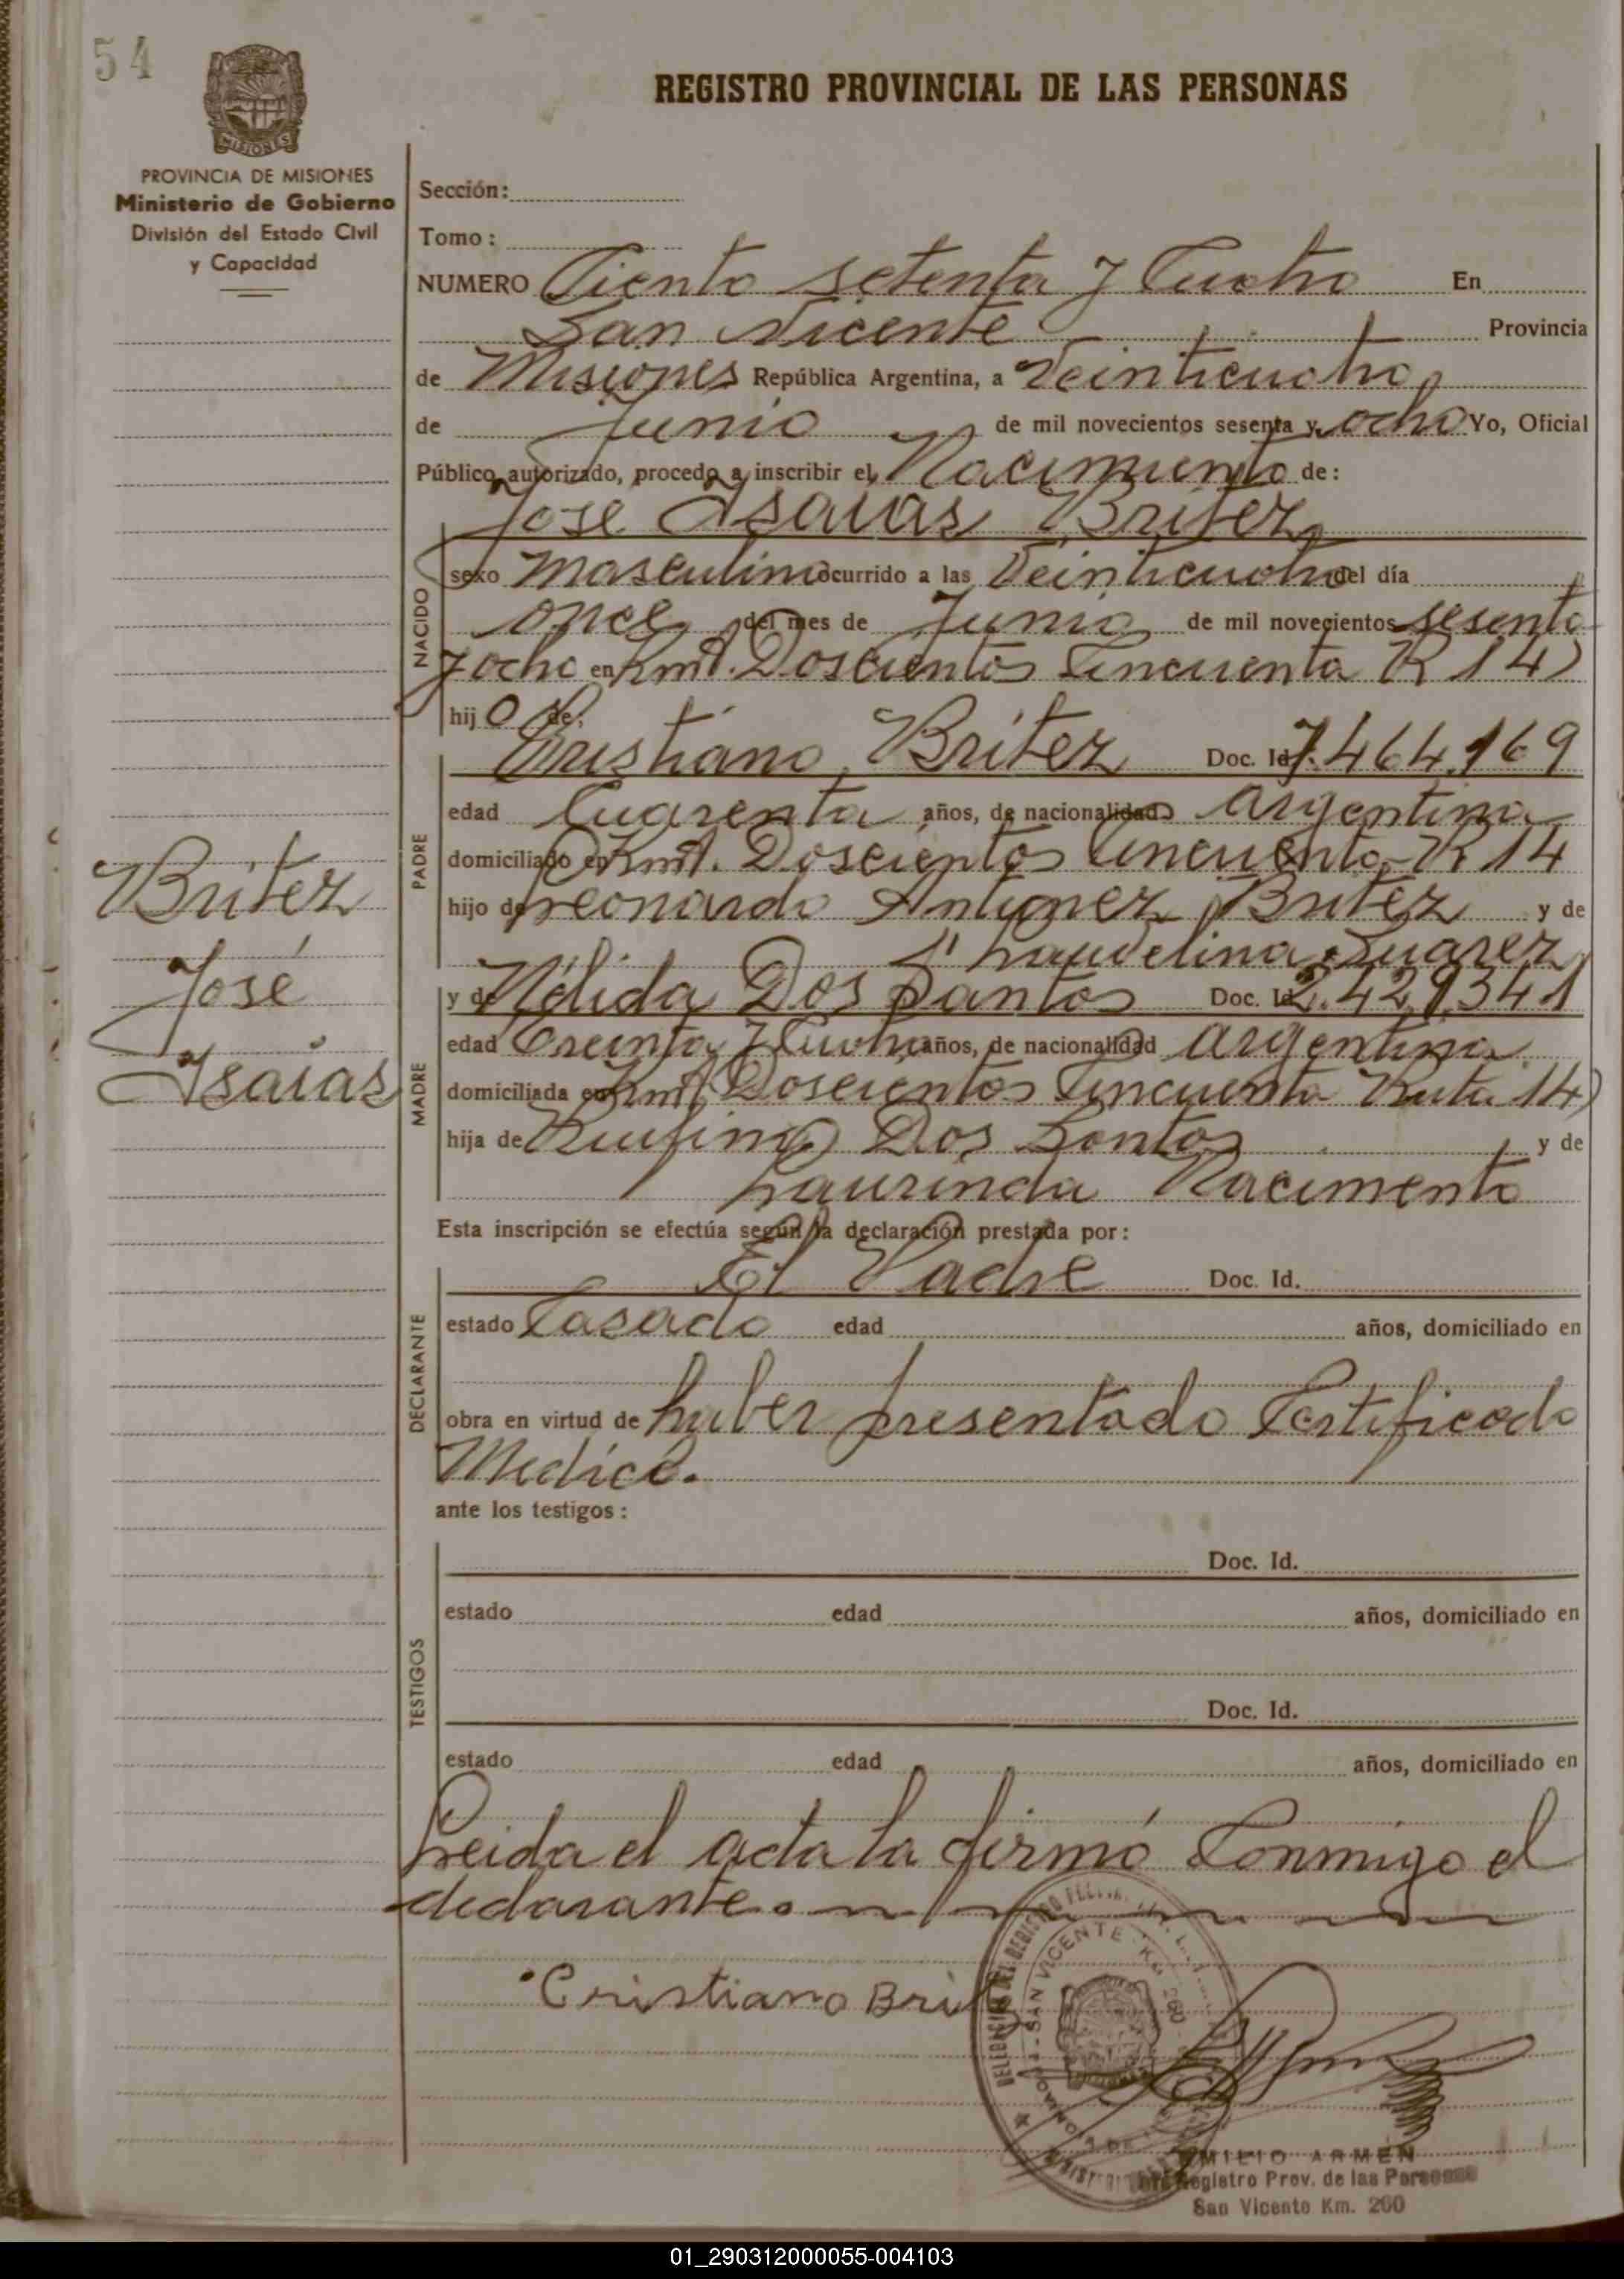 54
REGISTRO PROVINCIAL DE LAS PERSONAS
MISIONES
PROVINCIA DE MISIONES
Ministerio de Gobierno
División del Estado Civil
y Capacidad
Sección:
Tomo:
NUMERO Ciento setenta y Cuatro En
San Vicente Provincia
de Misiones República Argentina, a Veinticuatro
de Junio de mil novecientos sesenta y ocho Yo, Oficial
Público autorizado, procedo a inscribir el Nacimiento de:
José Isaias Britez
NACIDO
sexo masculino ocurrido a las Veinticuatro del día
once del mes de Junio de mil novecientos sesenta
y ocho en Kmt. Doscientos Cincuenta R 14)
hijo de:
PADRE
Cristiano Britez Doc. Id. 7.464.169
edad Cuarenta años, de nacionalidad argentina
domiciliado en Kmt. Doscientos Cincuenta R 14
hijo de Leonardo Antunez Britez y de
Laudelina Suarez
MADRE
y de Nélida Dos Santos Doc. Id. 2.429341
edad Treinta y Cuatro años, de nacionalidad argentina
domiciliada en Kmt Doscientos Cincuenta Ruta 14)
hija de Rufino Dos Santos y de
Laurinda Nacimento
Britez
José
Isaias
Esta inscripción se efectúa según la declaración prestada por:
DECLARANTE
El Padre Doc. Id.
estado Casado edad años, domiciliado en
obra en virtud de haber presentado Certificado
Medico.
ante los testigos:
TESTIGOS
Doc. Id.
estado edad años, domiciliado en
Doc. Id.
estado edad años, domiciliado en
Leida el acta la firmó Conmigo el
declarante.
Cristiano Brit
SAN VICENTE
EMILIO ARMEN
Registro Prov. de las Personas
San Vicente Km. 260
01_290312000055-004103